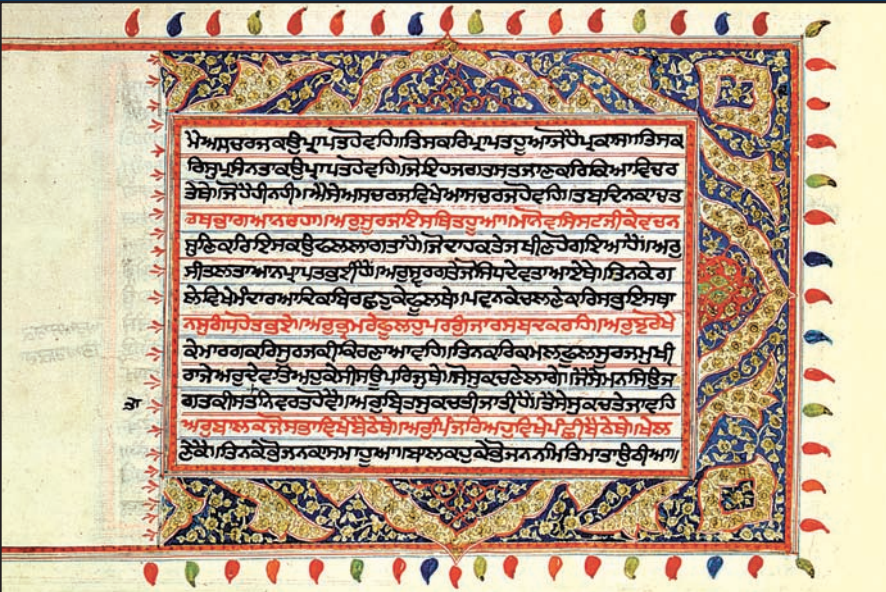 ਮੇਅਸਚਰਜਕਉਪ੍ਰਾਪਤਹੋਵਹਿ॥ਤਿਸਕਰਿਪ੍ਰਾਪਤਹੂਆਜੋਹੈਪ੍ਰਕਾਸ॥ਤਿਸਕ
ਰਿਸੁਪ੍ਰਸੰਨਤਾਕਉਪ੍ਰਾਪਤਹੋਵਹਿ॥ਜੋਇਹਜਗਤਸਤਜਾਣਕਰਿਕਿਆਵਿਚਰ
ਤੇਥੇ॥ਜੋਹੈਹੀਨਹੀਮਨੈਸੇਅਸਚਰਜਵਿਖੇਆਸਚਰਜਹੋਵਹਿ॥ਤਬਦਿਨਕਾਚਤ
ਰਥਭਾਗਆਨਰਹਾ॥ਅਰੁਸੂਰਜਇਸਥਿਤਹੂਆ॥ਮਾਨੋਵਸਿਸਟਜੀਕੇਵਚਨ
ਸੁਣਿਕਰਿਇਸਕਉਫਲਲਾਗਤਾਹੈ॥ਜੋਦਾਹਕਤੇਜਖੀਣਹੋਗਇਆਹੈ॥ਅਰੁ
ਸੀਤਲਤਾਆਨਪ੍ਰਾਪਤਭਈਹੈ॥ਅਰੁਸ੍ਵਰਗਤੇਜੋਸਿਧਦੇਵਤਾਆਏਥੇ॥ਤਿਨਕੇਗ
ਲੇਵਿਖੇਮੰਦਾਰਆਦਿਕਬਿਰਛਹੁਕੇਫੂਲਥੇ॥ਪਵਨਕੇਚਲਣੇਕਰਿਸਭਇਸਥਾ
ਨਸੁਗੰਧਹੋਤਭਏ॥ਅਰੁਭ੍ਰਮਰੇਫੂਲਹੁਪਰਗੁੰਜਾਰਸਬਦਕਰਹਿ॥ਅਰੁਝਰੋਖੇ
ਕੇਮਾਰਗਕਰਿਸੂਰਜਕੀਕਿਰਣਾਆਵਹਿ॥ਤਿਨਕਰਿਕਮਲਫੂਲਸੂਰਜਮੁਖੀ
ਰਾਜੇਅਰੁਦੇਵਤਿਅਹੁਕੇਸੀਸਉਪਰਿਜੁਥੇ॥ਸੋਸੁਕਚਣੇਲਾਗੇ॥ਜੈਸੇਮਨਸਿਉਜ
ਗਤਕੀਸਤਨਿਵਰਤਹੋਵੈ॥ਅਰੁਬ੍ਰਿਤਸੁਕਚਤੀਜਾਤੀਹੈ॥ਤੈਸੇਸੁਕਚਤੇਜਾਵਹਿ
ਅਰੁਬਾਲਕਜੋਸਭਾਵਿਖੇਬੈਠੇਥੇ॥ਅਰੁਪਿੰਜਰਿਅਹੁਵਿਖੇਪੰਛੀਬੈਠੇਥੇ॥ਖੇਲ
ਣੇਕੈ॥ਤਿਨਕੇਭੋਜਨਕਾਸਮਾਹੂਆ॥ਬਾਲਕਹੁਕੇਭੋਜਨਨਮਿਤਿਮਾਤਾਉਠੀਆ॥